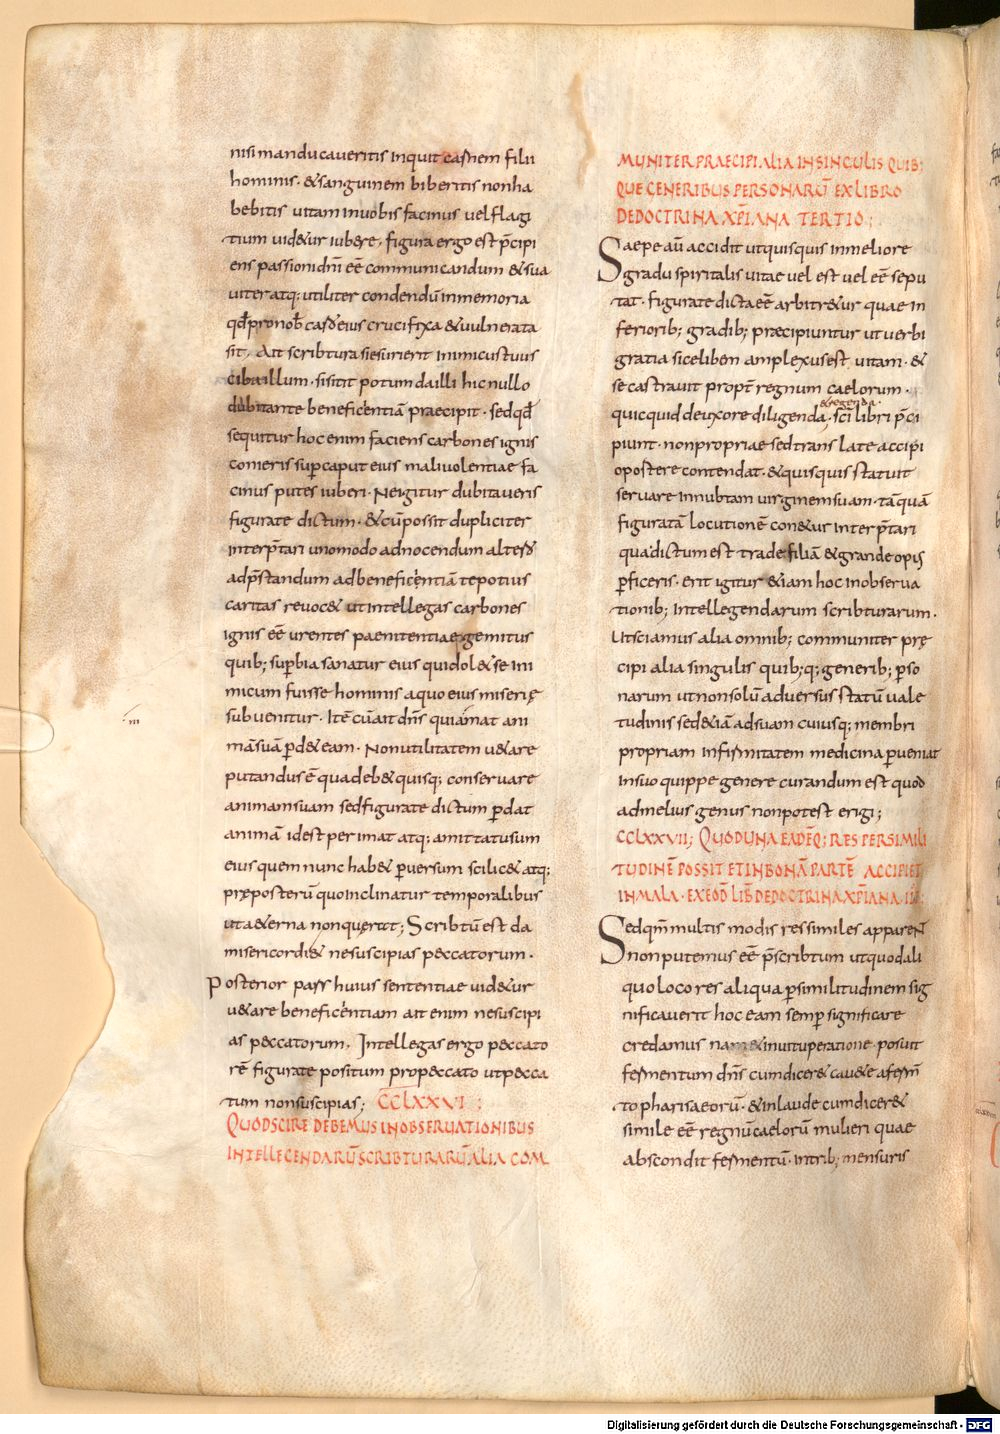 nisi manducaveritis inquit carnem filii
hominis · & sanguinem biberitis non ha
bebitis vitam in vobis facinus vel flagi
tium vid&ur iub&re · figura ergo est p̄cipi
ens passioni dn̄i eē communicandum & sua
viter atq; utiliter condendū in memoria
qđ pro nob̄ caro eius crucifixa & vulnerata
sit · Ait scribtura si esurierit inimicus tuus
ciba illum · si sitit potum da illi hic nullo
dubitante beneficentiā praecipit · sed qđ
sequitur hoc enim faciens carbones ignis
congeris sup̄ caput eius malivolentiae fa
cinus putes iuberi · Ne igitur dubitaveris
figurate dictum · & cū possit dupliciter
interp̄tari uno modo ad nocendum altero
ad p̄standum ad beneficentiā te potius
caritas revoc& ut intellegas carbones
ignis eē urentes paenitentiae gemitus
quib; sup̄bia sanatur eius qui dol& se ini
micum fuisse hominis a quo eius miserię
subvenitur · Itē cū ait dn̄s qui amat ani
mā suā p̄d& eam · Non utilitatem v&are
putandus ē qua deb& quisq; conservare
animam suam sed figurate dictum p̄dat
animā id est perimat atq; amittat usum
eius quem nunc hab& p̄versum scilic& atq;
pręposterū quo inclinatur temporalibus
ut a&erna non quęrat; Scribtū est da
misericordi& ne suscipias peccatorum ·
Posterior pars huius sententiae vid&ur
v&are beneficentiam ait enim ne suscipi
as peccatorum · Intellegas ergo peccato
rē figurate positum pro peccato ut pecca
tum non suscipias; CCLXXVI;
QUOD SCIRE DEBEMUS IN OBSERVATIONIBUS
INTELLEGENDARŪ SCRIBTURARŪ ALIA COM
MUNITER PRAECIPI ALIA IN SINGULIS QUIB;
QUE GENERIBUS PERSONARŪ EX LIBRO
DE DOCTRINA XP̄IANA TERTIO;
Saepe aū accidit ut quisquis in meliore
gradu spiritalis vitae vel est vel eē se pu
tat · figurate dicta eē arbitr&ur quae in
feriorib; gradib; praecipiuntur ut verbi
gratia si celibem amplexus est vitam · &
se castravit propt̄ regnum caelorum ·
& regenda ·
quicquid de uxore diligenda · sc̄i libri p̄ci
piunt · non propriae sed translate accipi
oportere contendat · & quisquis statuit
servare innubtam virginem suam · tāquā
figuratā locutionē con&ur interp̄tari
qua dictum est trade filiā & grande opus
p̄ficeris · erit igitur & iam hoc in observa
tionib; intellegendarum scribturarum ·
Ut sciamus alia omnib; communiter prę
cipi alia singulis quib;q; generib; p̄so
narum ut non solū adversus statū vale
tudinis sed &iā ad suam cuiusq; membri
propriam infirmitatem medicina p̄veniat
in suo quippe genere curandum est quod
ad melius genus non potest erigi;
CCLXXVII; QUOD UNA EADĒQ; RES PER SIMILI
TUDINĒ POSSIT ET IN BONĀ PARTĒ ACCIPI ET
IN MALA · EX EOD̄ LIB̄ DE DOCTRINA XP̄IANA · III;
Sed qm̄ multis modis res similes apparent
non putemus eē p̄scribtum ut quod ali
quo loco res aliqua p̄ similitudinem sig
nificaverit hoc eam semp̄ significare
credamus nam & in vituperatione posuit
fermentum dn̄s cum dicer& cav&e a ferm̄
to pharisaeorū · & in laude cum dicer&
simile eē regnū caelorū mulieri quae
abscondit fermentū · in trib; mensuris
Digitalisierung gefördert durch die Deutsche Forschungsgemeinschaft - DFG